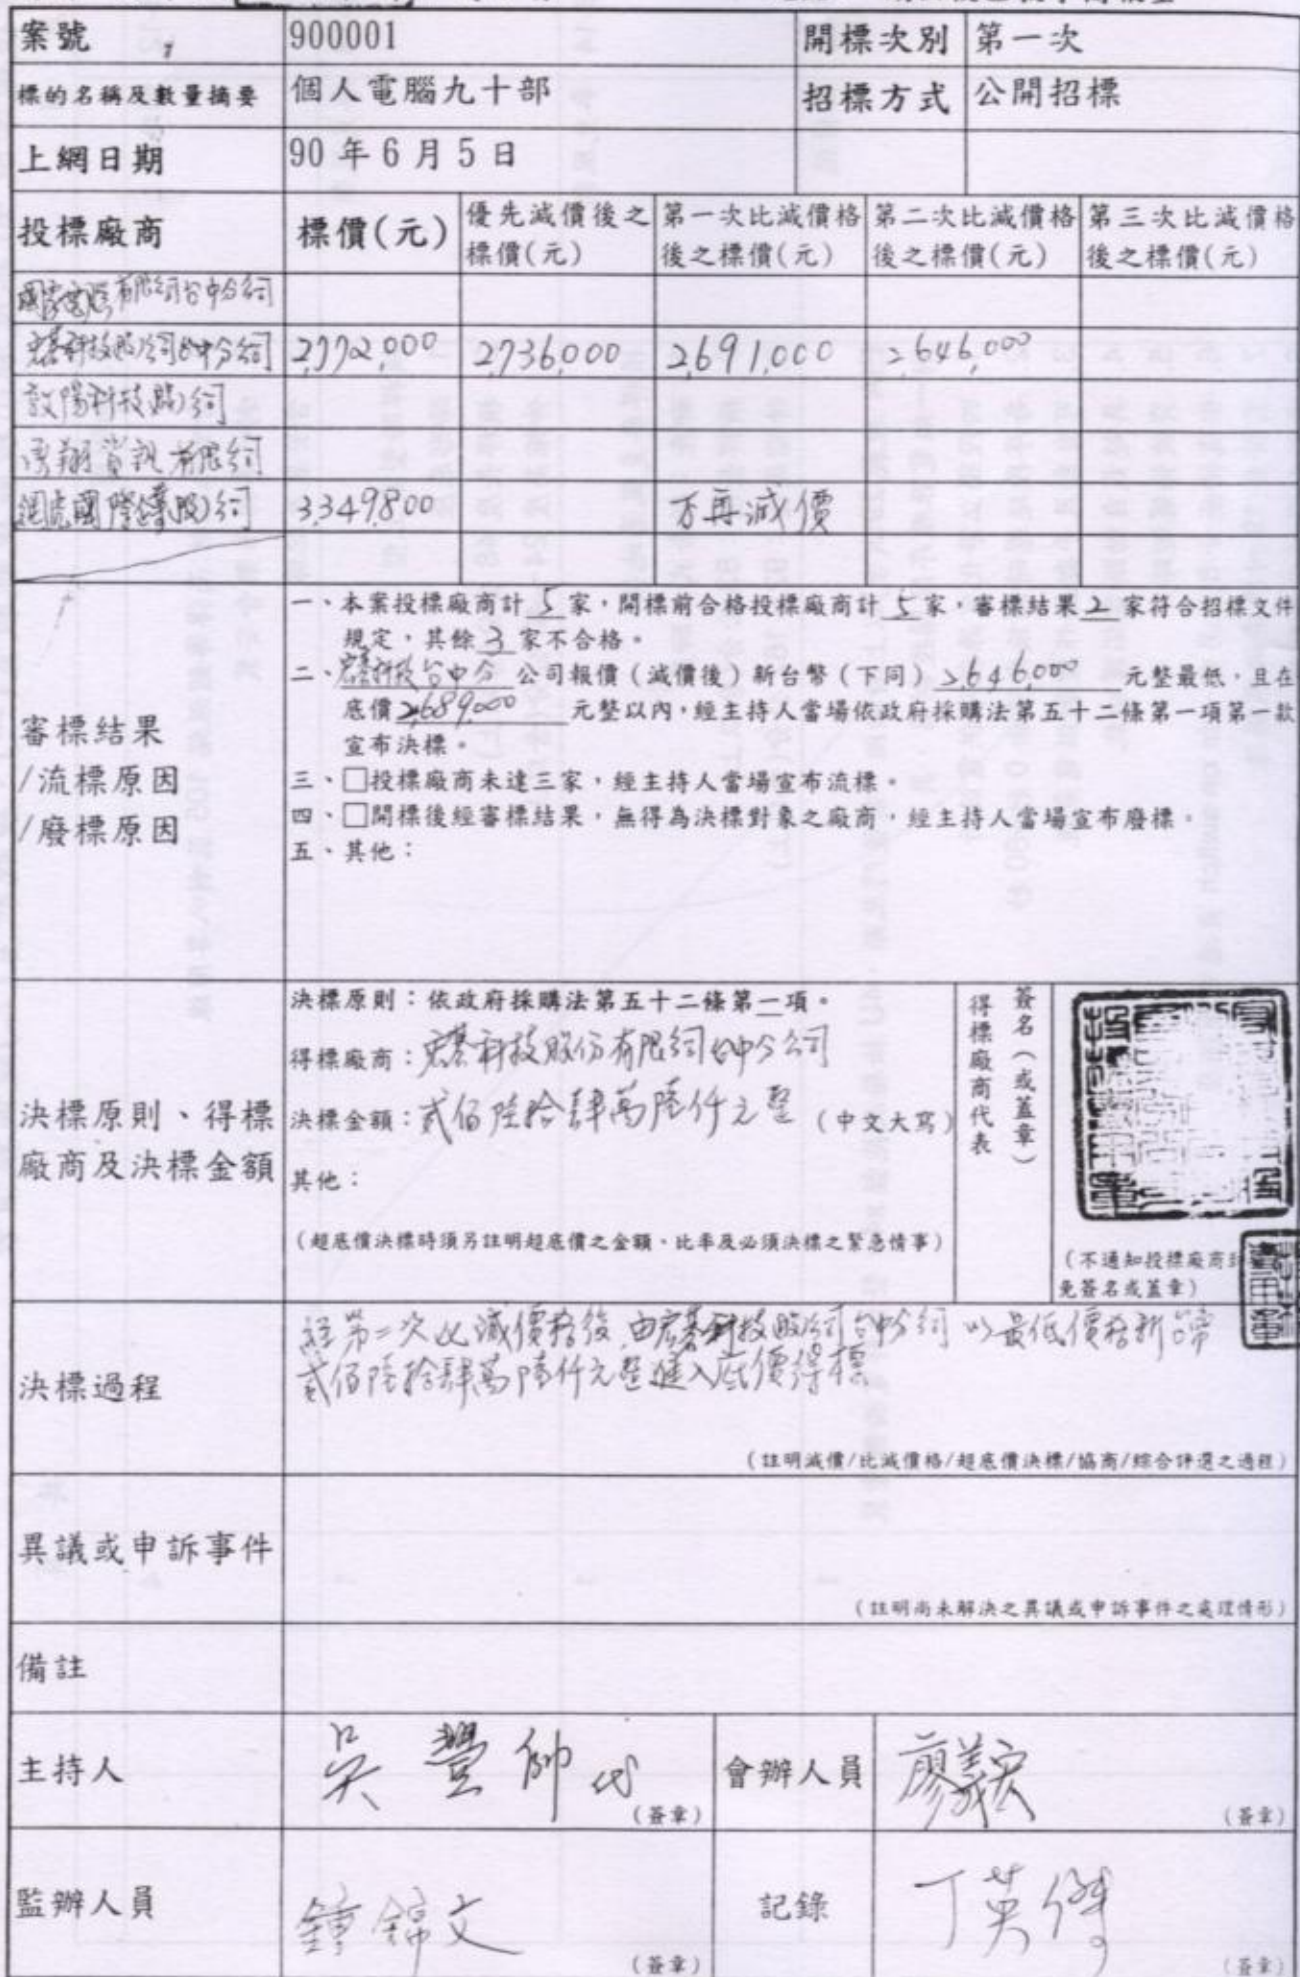 案號 900001 開標次別 第一次
標的名稱及數量摘要 個人電腦九十部 招標方式 公開招標
上網日期 90 年 6 月 5 日
投標廠商 標價(元) 優先減價後之標價(元) 第一次比減價格後之標價(元) 第二次比減價格後之標價(元) 第三次比減價格後之標價(元)
有限公司台中分公司
宏碁科技股)公司台中分公司 2,772,000 2,736,000 2,691,000 2,646,000
敦陽科技股)公司
資訊有限公司
國際 股)公司 3,349,800 不再減價
審標結果
/流標原因
/廢標原因
一、本案投標廠商計 5 家，開標前合格投標廠商計 5 家，審標結果 2 家符合招標文件
規定，其餘 3 家不合格。
二、宏碁科技台中分 公司報價（減價後）新台幣（下同） 2,646,000 元整最低，且在
底價 2,689,000 元整以內，經主持人當場依政府採購法第五十二條第一項第一款
宣布決標。
三、□投標廠商未達三家，經主持人當場宣布流標。
四、□開標後經審標結果，無得為決標對象之廠商，經主持人當場宣布廢標。
五、其他：
決標原則、得標
廠商及決標金額
決標原則：依政府採購法第五十二條第一項。
得標廠商：宏碁科技股份有限公司台中分公司
決標金額：貳佰陸拾肆萬陸仟元整 （中文大寫）
其他：
（超底價決標時須另註明超底價之金額、比率及必須決標之緊急情事）
得標廠商代表
簽名（或蓋章）
（不通知投標廠商
免簽名或蓋章）
決標過程
經第二次比減價格後,由宏碁科技股)公司台中分公司以最低價格新台幣
貳佰陸拾肆萬陸仟元整進入底價得標
（註明減價/比減價格/超底價決標/協商/綜合評選之過程）
異議或申訴事件
（註明尚未解決之異議或申訴事件之處理情形）
備註
主持人 吳豐帥 代 （簽章） 會辦人員 廖義宏 （簽章）
監辦人員 鍾錦文 （簽章） 記錄 丁英傑 （簽章）